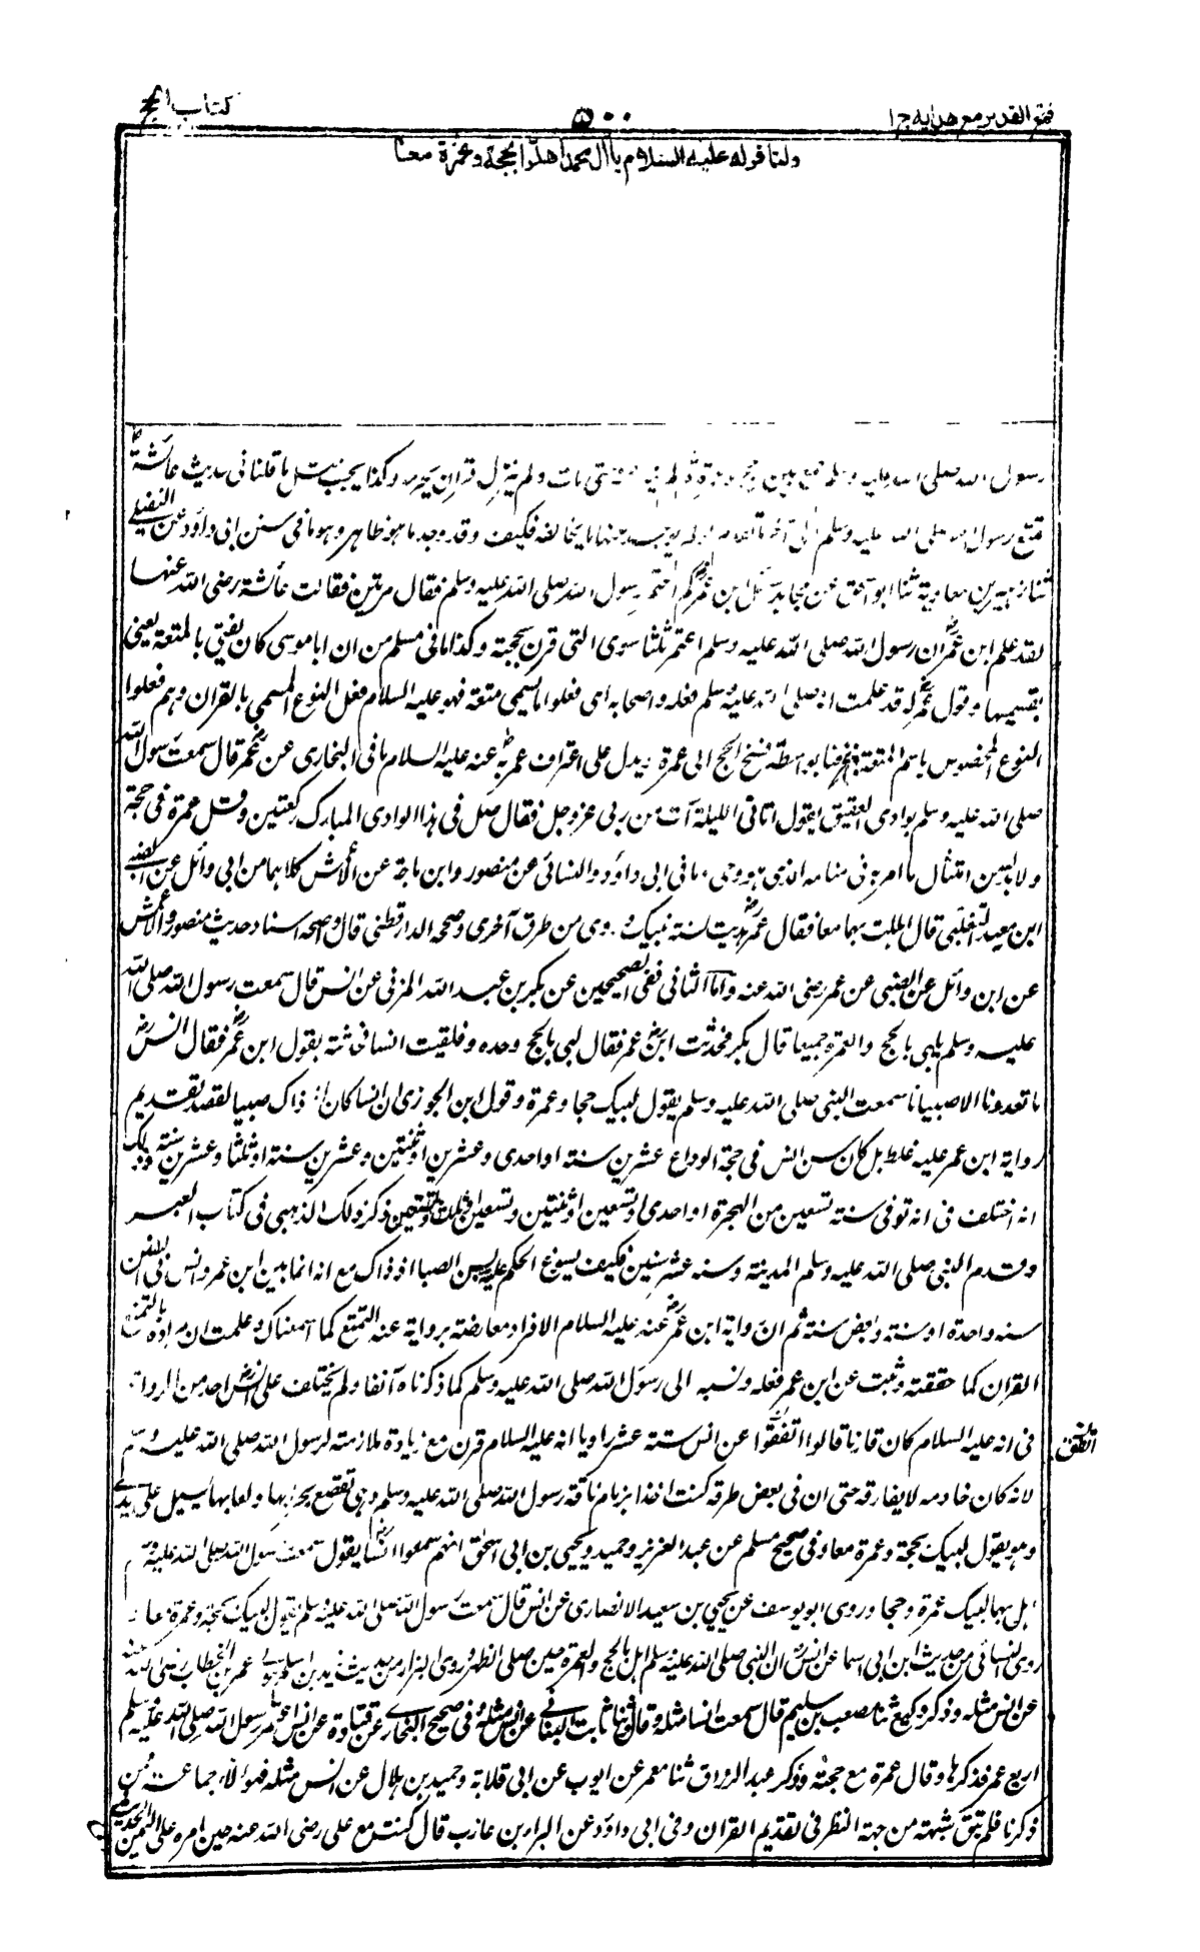 فتح القدير مع هدايه ج ا
٥٠٠
كتاب الحج
ولنا قوله عليه السلام يا آل محمد اهلوا بحجة وعمرة معا
رسول الله صلى الله عليه وسلم جمع بين حج وعمرة ثم لم ينه عنه حتى مات ولم ينزل قرآن يحرمه وكذا يجب مثل ما قلنا فى حديث عائشة
تمتع رسول الله صلى الله عليه وسلم الى آخره لو لم يوجد عنها ما يخالفه فكيف وقد وجد ما هو ظاهر وهو ما فى سنن ابى داؤد عن النفيلى
ثنا زهير بن معاوية ثنا ابو اسحق عن مجاهد سئل ابن عمر كم اعتمر رسول الله صلى الله عليه وسلم فقال مرتين فقالت عائشة رضى الله عنها
لقد علم ابن عمر ان رسول الله صلى الله عليه وسلم اعتمر ثلثا سوى التى قرن بحجته وكذا ما فى مسلم من ان ابا موسى كان يفتى بالمتعة يعنى
بقسميها وقول عمر له قد علمت انه صلى الله عليه وسلم فعله واصحابه اى فعلوا ما يسمى متعة فهو عليه السلام فعل النوع المسمى بالقران وهم فعلوا
النوع المخصوص باسم المتعة فى عرفنا بواسطة فسخ الحج الى عمرة ويدل على اعتراف عمر به عنه عليه السلام ما فى البخارى عن عمر قال سمعت رسول الله
صلى الله عليه وسلم بوادى العقيق يقول اتانى الليلة آت من ربى عز وجل فقال صل فى هذا الوادى المبارك ركعتين وقل عمرة فى حجة
ولا بد من امتثال ما امر به فى منامه الذى هو وحى وما فى ابى داؤد والنسائى عن منصور وابن ماجة عن الاعمش كلاهما من ابى وائل عن الصبى
ابن معبد التغلبى قال اهللت بهما معا فقال عمر هديت لسنة نبيك وروى من طرق آخرى وصححه الدارقطنى قال واصحه اسنادا حديث منصور والاعمش
عن ابن وائل عن الصبى عن عمر رضى الله عنه واما الثانى ففى الصحيحين عن بكر بن عبد الله المزنى عن انس قال سمعت رسول الله صلى الله
عليه وسلم يلبى بالحج والعمرة جميعا قال بكر فحدثت ابن عمر فقال لبى بالحج وحده وفلقيت انسا فحدثته بقول ابن عمر فقال انس
ما تعدونا الا صبيانا سمعت النبى صلى الله عليه وسلم يقول لبيك حجا وعمرة وقول ابن الجوزى ان انسا كان اذ ذاك صبيا لقصد تقديم
رواية ابن عمر عليه غلط بل كان سن انس فى حجة الوداع عشرين سنة او احدى وعشرين او ثنتين وعشرين سنة او ثلثا وعشرين سنة وذلك
انه اختلف فى انه توفى سنة تسعين من الهجرة او احدى او تسعين او ثنتين وتسعين او ثلث وتسعين ذكر ذلك الذهبى فى كتاب العبر
وقدم النبى صلى الله عليه وسلم المدينة وسنه عشر سنين فكيف يسوغ الحكم عليه بسن الصبا اذ ذاك مع انه انما بين ابن عمر وانس فى السن
سنة واحدة او سنة وبعض سنة ثم ان رواية ابن عمر عنه عليه السلام الافراد معارضة برواية عنه التمتع كما اسمعناك وعلمت ان مراده بالتمتع
القران كما حققته وثبت عن ابن عمر فعله ونسبه الى رسول الله صلى الله عليه وسلم كما ذكرناه آنفا ولم يختلف على انس احد من الرواة
فى انه عليه السلام كان قارنا قالوا اتفقوا عن انس ستة عشر راويا انه عليه السلام قرن مع زيادة ملازمته لرسول الله صلى الله عليه وسلم
لانه كان خادمه لا يفارقه حتى ان فى بعض طرقه كنت اخذا بزمام ناقة رسول الله صلى الله عليه وسلم وهى تقصع بجرتها ولعابها يسيل على يدى
وهو يقول لبيك بحجة وعمرة معا وفى صحيح مسلم عن عبد العزيز وحميد ويحيى بن ابى اسحق انهم سمعوا انسا يقول سمعت رسول الله صلى الله عليه وسلم
اهل بهما لبيك عمرة وحجا وروى ابو يوسف عن يحيى بن سعيد الانصارى عن انس قال سمعت رسول الله صلى الله عليه وسلم يقول لبيك بحجة وعمرة معا
روى النسائى من حديث ابن ابى اسما عن انس ان النبى صلى الله عليه وسلم اهل بالحج والعمرة حين صلى الظهر وروى البزار من حديث زيد بن اسلم مولى عمر بن الخطاب رضى الله عنه
عن انس مثله وذكر وكيع ثنا مصعب بن سليم قال سمعت انسا مثله وقال وثنا ثابت البنانى عن انس مثله وفى صحيح البخارى عن قتادة عن انس اعتمر رسول الله صلى الله عليه وسلم
اربع عمر فذكرها وقال عمرة مع حجته وذكر عبد الرزاق ثنا معمر عن ايوب عن ابى قلابة وحميد بن هلال عن انس مثله فهؤلاء جماعة ممن
ذكرنا فلم تبق شبهة من جهة النظر فى تقديم القران وفى ابى داؤد عن البراء بن عازب قال كنت مع على رضى الله عنه حين امره على اليمن الحديث